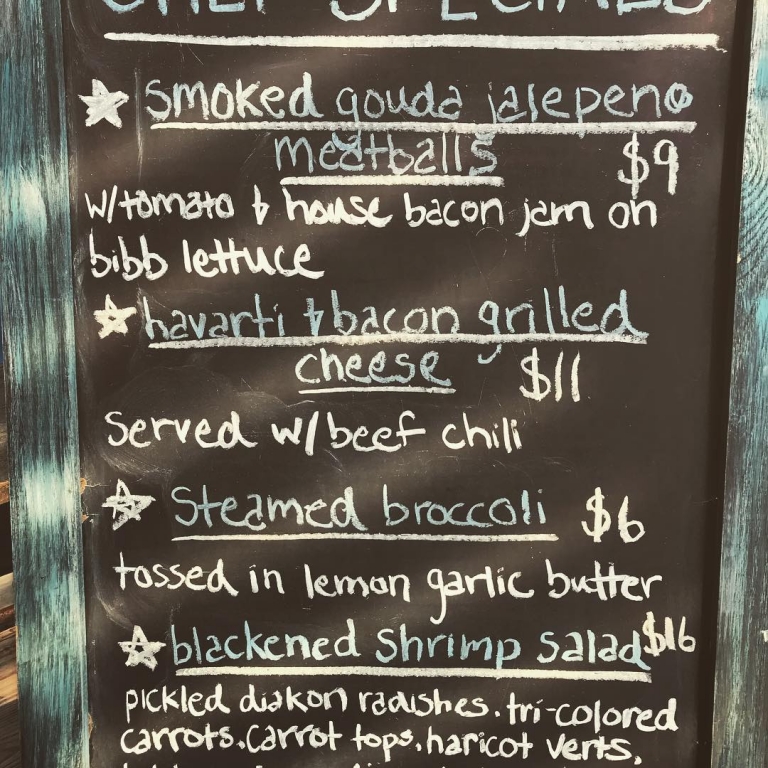 CHEF SPECIALS
smoked gouda jalepeno
meatballs $9
w/tomato & house bacon jam on
bibb lettuce
havarti & bacon grilled
cheese $11
Served w/beef chili
Steamed broccoli $6
tossed in lemon garlic butter
blackened Shrimp Salad $16
pickled diakon radishes. tri-colored
carrots. carrot tops. haricot verts.